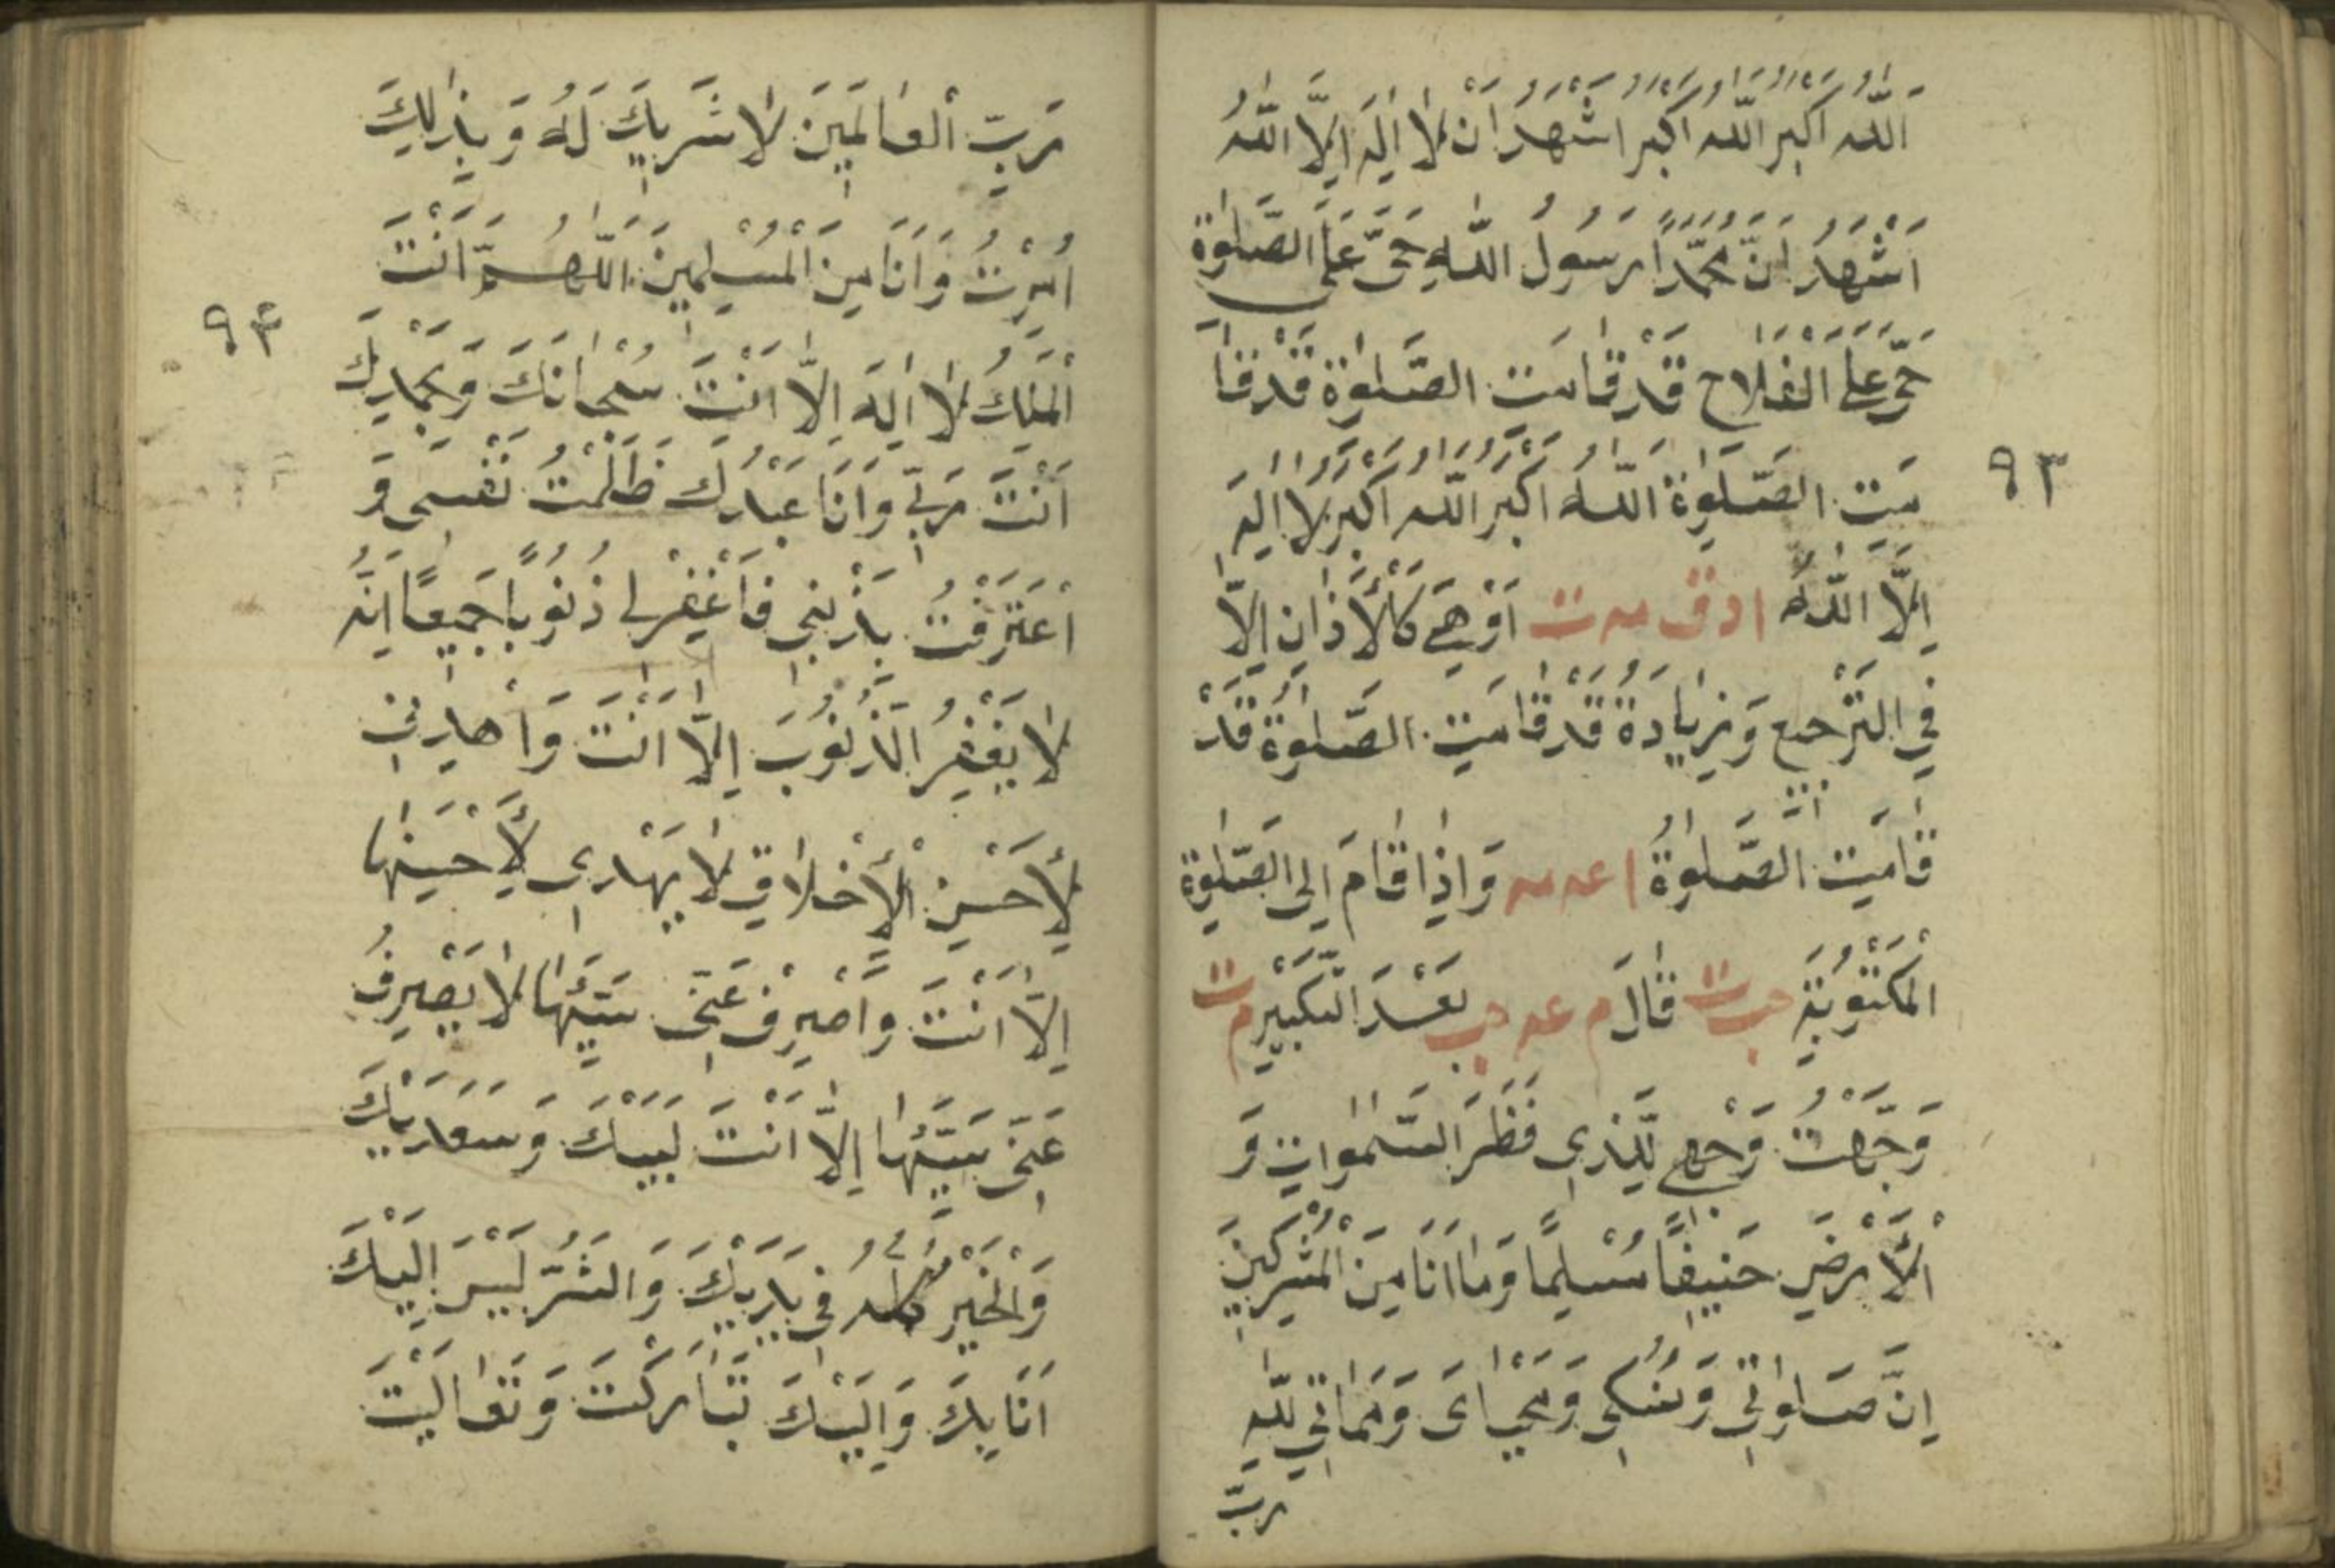 اَللّٰهُ اَكْبَرُ اَللّٰهُ اَكْبَرُ اَشْهَدُ اَنْ لَا اِلٰهَ اِلَّا اللّٰهُ
اَشْهَدُ اَنَّ مُحَمَّدًا رَسُولُ اللّٰهِ حَيَّ عَلَى الصَّلٰوةِ
حَيَّ عَلَى الْفَلَاحِ قَدْ قَامَتِ الصَّلٰوةُ قَدْ قَا
مَتِ الصَّلٰوةُ اَللّٰهُ اَكْبَرُ اَللّٰهُ اَكْبَرُ لَا اِلٰهَ
٩٣
اِلَّا اللّٰهُ ا د ق مه ت اَوْ هِيَ كَالْاَذَانِ اِلَّا
فِي التَّرْجِيعِ وَزِيَادَةُ قَدْ قَامَتِ الصَّلٰوةُ قَدْ
قَامَتِ الصَّلٰوةُ ا عه مه وَاِذَا قَامَ اِلَى الصَّلٰوةِ
الْمَكْتُوبَةِ حب ت قَالَ م عه حب بَعْدَ التَّكْبِيْرِ م ت
وَجَّهْتُ وَجْهِيَ لِلَّذِي فَطَرَ السَّمٰوَاتِ وَ
الْاَرْضَ حَنِيفًا مُسْلِمًا وَمَا اَنَا مِنَ الْمُشْرِكِينَ
اِنَّ صَلٰوتِي وَنُسُكِي وَمَحْيَايَ وَمَمَاتِي لِلّٰهِ
رب
رَبِّ الْعَالَمِينَ لَا شَرِيكَ لَهُ وَبِذٰلِكَ
اُمِرْتُ وَاَنَا مِنَ الْمُسْلِمِينَ اَللّٰهُمَّ اَنْتَ
٩٤
الْمَلِكُ لَا اِلٰهَ اِلَّا اَنْتَ سُبْحَانَكَ وَبِحَمْدِكَ
اَنْتَ رَبِّي وَاَنَا عَبْدُكَ ظَلَمْتُ نَفْسِي وَ
اعْتَرَفْتُ بِذَنْبِي فَاغْفِرْ لِي ذُنُوبًا جَمِيعًا اِنَّهُ
لَا يَغْفِرُ الذُّنُوبَ اِلَّا اَنْتَ وَاهْدِنِي
لِاَحْسَنِ الْاَخْلَاقِ لَا يَهْدِي لِاَحْسَنِهَا
اِلَّا اَنْتَ وَاصْرِفْ عَنِّي سَيِّئَهَا لَا يَصْرِفُ
عَنِّي سَيِّئَهَا اِلَّا اَنْتَ لَبَّيْكَ وَسَعْدَيْكَ
وَالْخَيْرُ كُلُّهُ فِي يَدَيْكَ وَالشَّرُّ لَيْسَ اِلَيْكَ
اَنَا بِكَ وَاِلَيْكَ تَبَارَكْتَ وَتَعَالَيْتَ